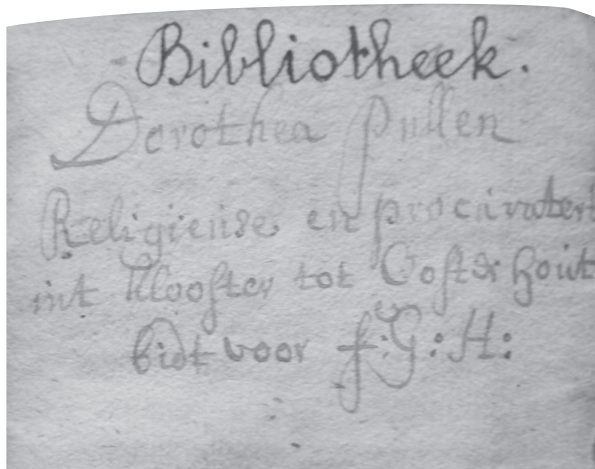 Bibliotheek.
Dorothea Pullen
Religieuse en procuratersse
int klooster tot Oosterhout
bidt voor f: G: H: